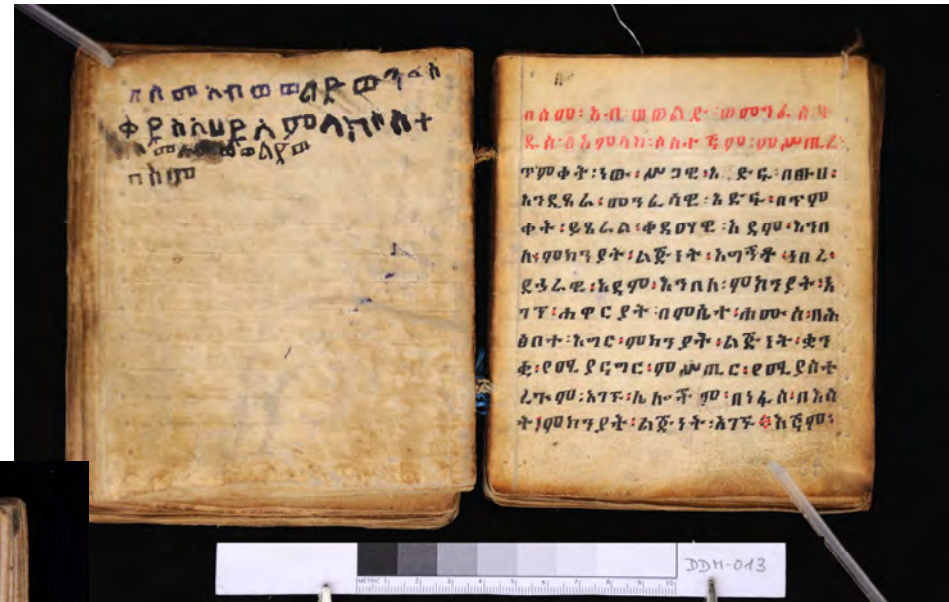 በስመ አብ ወወልድ ወን
ቀዱስ አሀዱ አምላክ
ወልድ
በስም
በስመ፡ አብ፡ ወወልድ፡ ወመንፈስ
ዱስ፡ ፩አምላክ፡
ጥምቀት፡ ነው፡ ሥጋዊ፡ አ ድፍ፡ በፁሀ፡
እንዲጸራ፡ መንፈሳዊ፡ እድፍ፡ በጥም
ቀት፡ ይጸራል፡ ቀዳማዊ፡ አዳም፡ እንበ
አ፡ ምክንያት፡ ልጅነት፡ አግኝቶ ነበረ፡
ደኃራዊ፡ አዳም፡ እንበለ፡ ምክንያት፡ አ
ገኘ፡ ሐዋርያት በምሴተ፡ ሐሙስ፡ በሕ
ፅበተ፡ እግር፡ ምክንያት፡ ልጅነት፡ ቋን
ቋ፡ የሚያናግር፡ ምሥጢር፡ የሚያስተ
ረጕም፡ አገኙ፡ ሌሎችም፡ በነፋስ፡ በእሳ
ት፡ ምክንያት፡ ልጅነት፡ አገኙ
METRIC 1 2 3 4 5 6 7 8 9 10
DDM-013